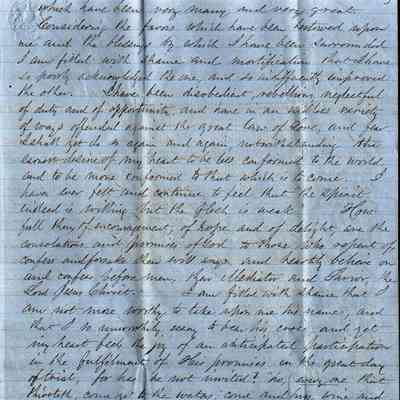 which have been very many and very great.
Considering the favors which have been bestowed upon
me and the blessings by which I have been surrounded
I am filled with shame and mortification that I have
so poorly acknowledged the one, and so indifferently improved
the other. I have been disobedient, rebellious, neglectful
of duty and of opportunity, and have in an endless variety
of ways offended against the great law of Love, and fear
I shall yet do so again and again, notwithstanding the
desire of my heart to be less conformed to the world
and to be more conformed to that which is to come. I
have ever felt and continue to feel that the spirit
indeed is willing but the flesh is weak. How
full then of encouragement, of hope and of delight, are the
consolations and promises of God to those who repent of
confess and forsake their sins and heartily believe on
and confess before men, their Mediator and Savior, the
Lord Jesus Christ. I am filled with shame that I
am not more worthy to take upon me his name, and
that I so unworthily seem to bear his cross, and yet
my heart feels the joy of an anticipated participation
in the fulfilment of His promises, in the great day
of trial, for has he not invited? "ho, every one that
thirsteth come ye to the waters, come and buy wine and